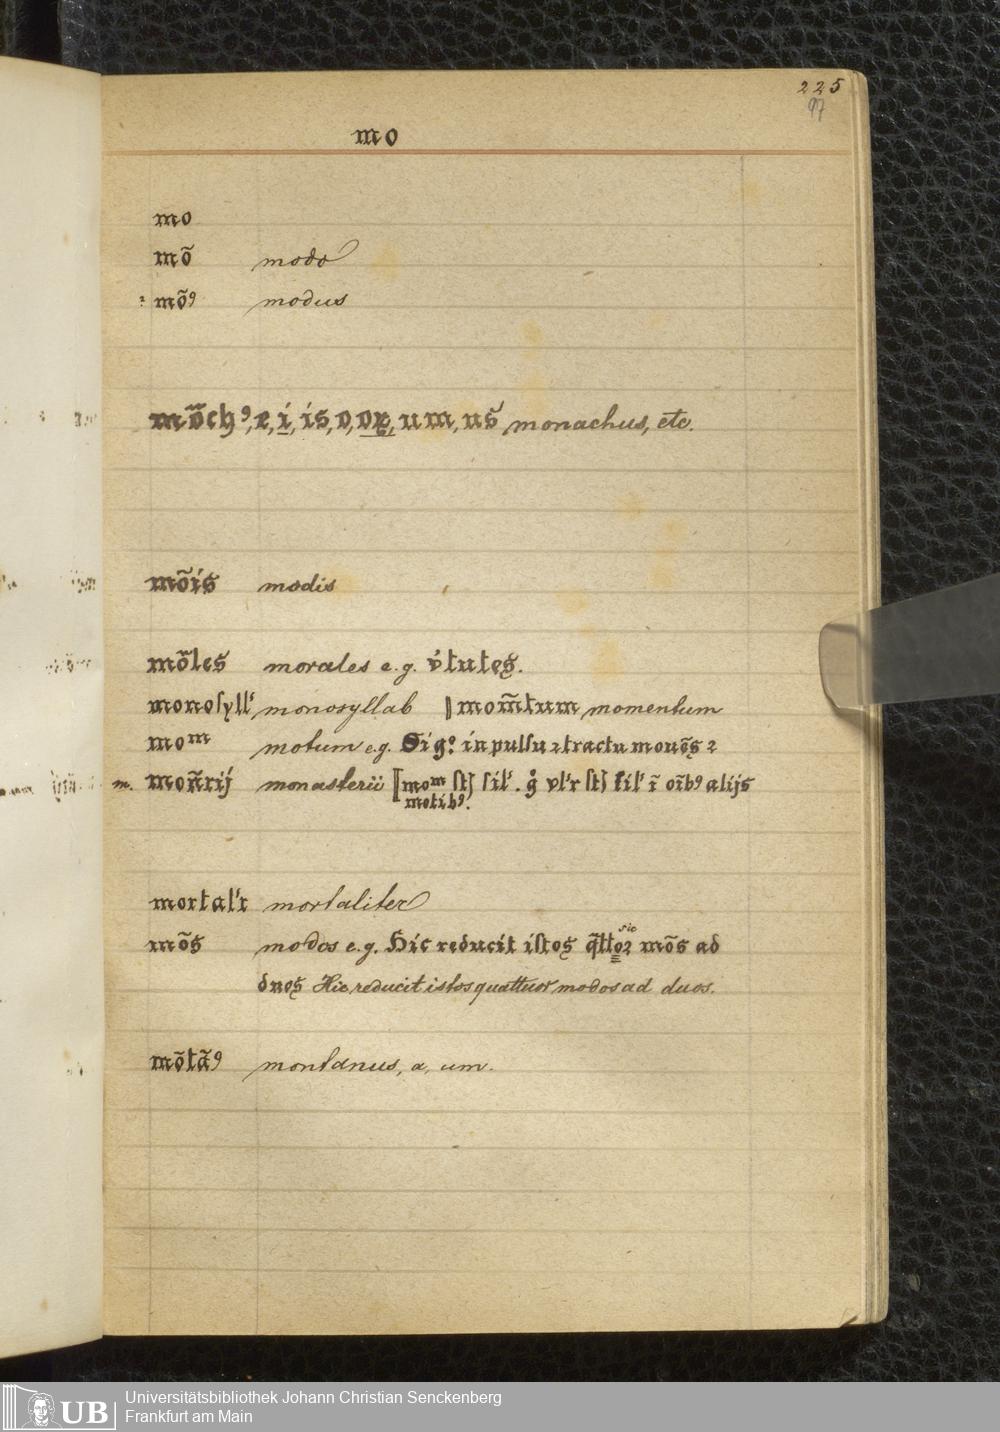 225
97
mo
mo
mõ modo
? mõꝰ modus
mõchꝰ, e, i, is, o, oꝝ, um, us̃ monachus, etc.
mõis modis
mõles morales e.g. v́tutes.
monoſyll' monosyllab ‖ mom̃tum momentum
moᵐ motum e.g. Sig° in pulſu ⁊ tractu
m. moñrij monasterii [moᵐ
motibꝰ.
alijs
mortal'r mortaliter
sic
mõs modos e.g. Hic reducit iſtos q̃ttoꝛ mõs ad
duos Hic reducit istos quattuor modos ad duos.
mõtãꝰ montanus, a, um.
UB Universitätsbibliothek Johann Christian Senckenberg
Frankfurt am Main